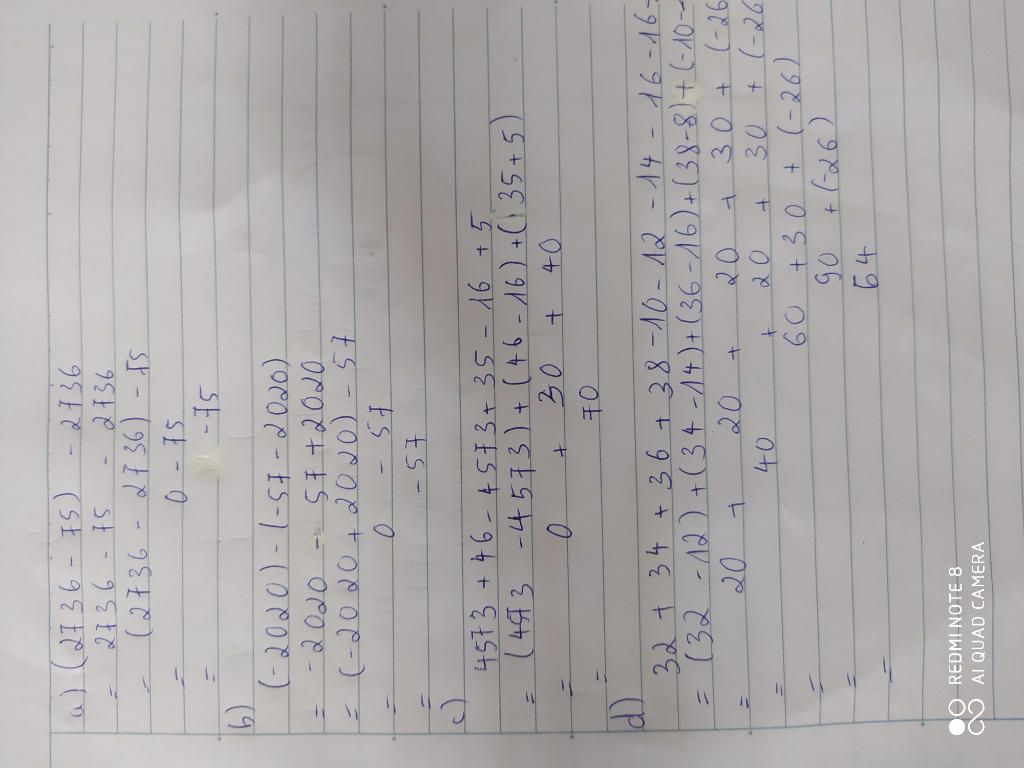 a) (2736 - 75) - 2736
= 2736 - 75 - 2736
= (2736 - 2736) - 75
= 0 - 75
= -75
b)
(-2020) - (-57 - 2020)
= -2020 - 57 + 2020
= (-2020 + 2020) - 57
= 0 - 57
= -57
c)
4573 + 46 - 4573 + 35 - 16 + 5
= (4573 - 4573) + (46 - 16) + (35 + 5)
= 0 + 30 + 40
= 70
d)
32 + 34 + 36 + 38 - 10 - 12 - 14 - 16 - 16 -
= (32 - 12) + (34 - 14) + (36 - 16) + (38 - 8) + (-10 -
= 20 + 20 + 20 + 30 + (-26
= 40 + 20 + 30 + (-26
= 60 + 30 + (-26)
= 90 + (-26)
= 64
REDMI NOTE 8
AI QUAD CAMERA